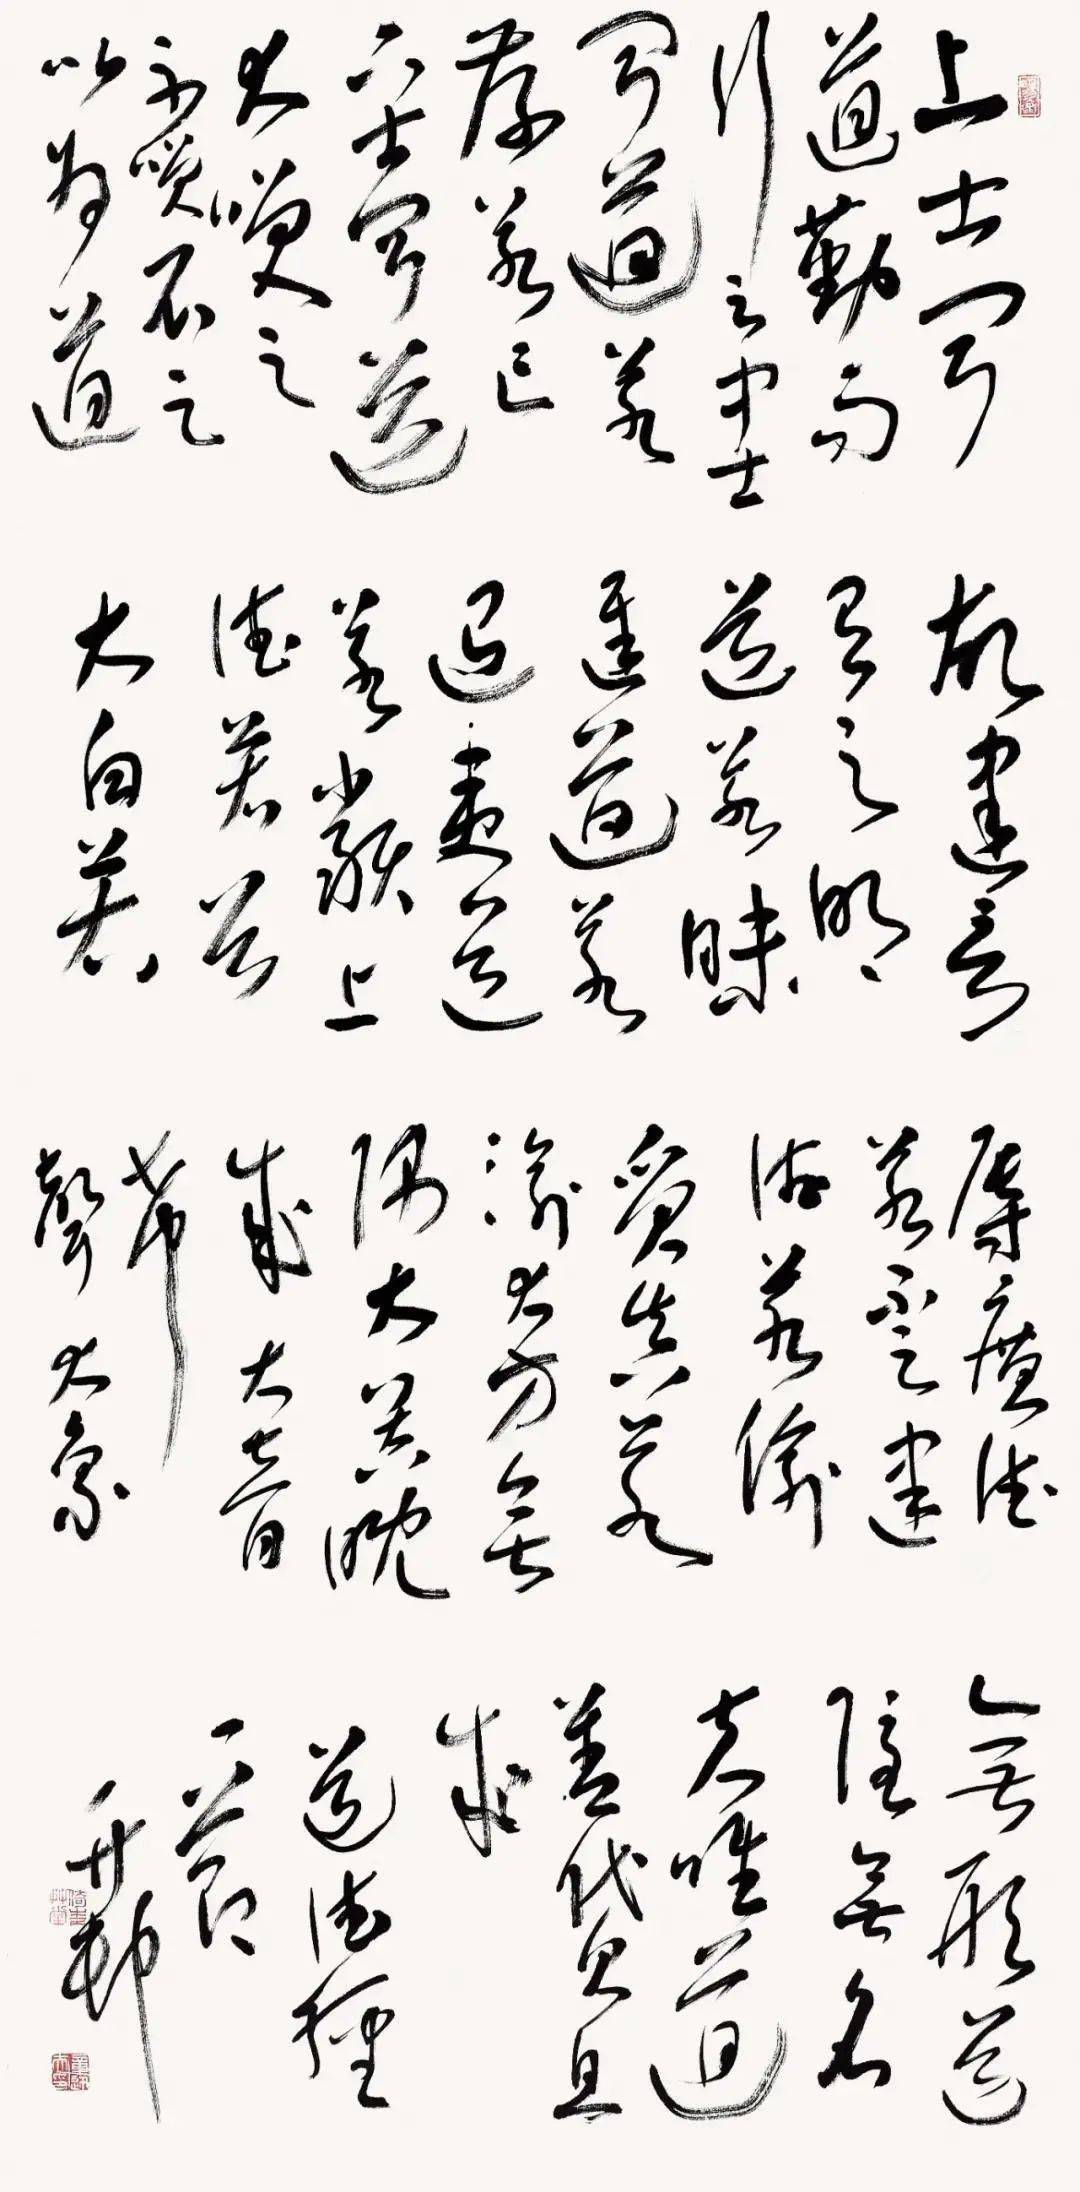 上士聞
道勤而
行之中士
聞道若
存若亡
下士聞道
大咲之
不咲不足
以為道
故建言
有之明
道若昧
進道若
退夷道
若纇上
德若谷
大白若
辱廣德
若不足建
德若偷
質真若
渝大方無
隅大器晚
成大音
希
聲大象
無形道
隱無名
夫唯道
善貸且
成
道德經
一節